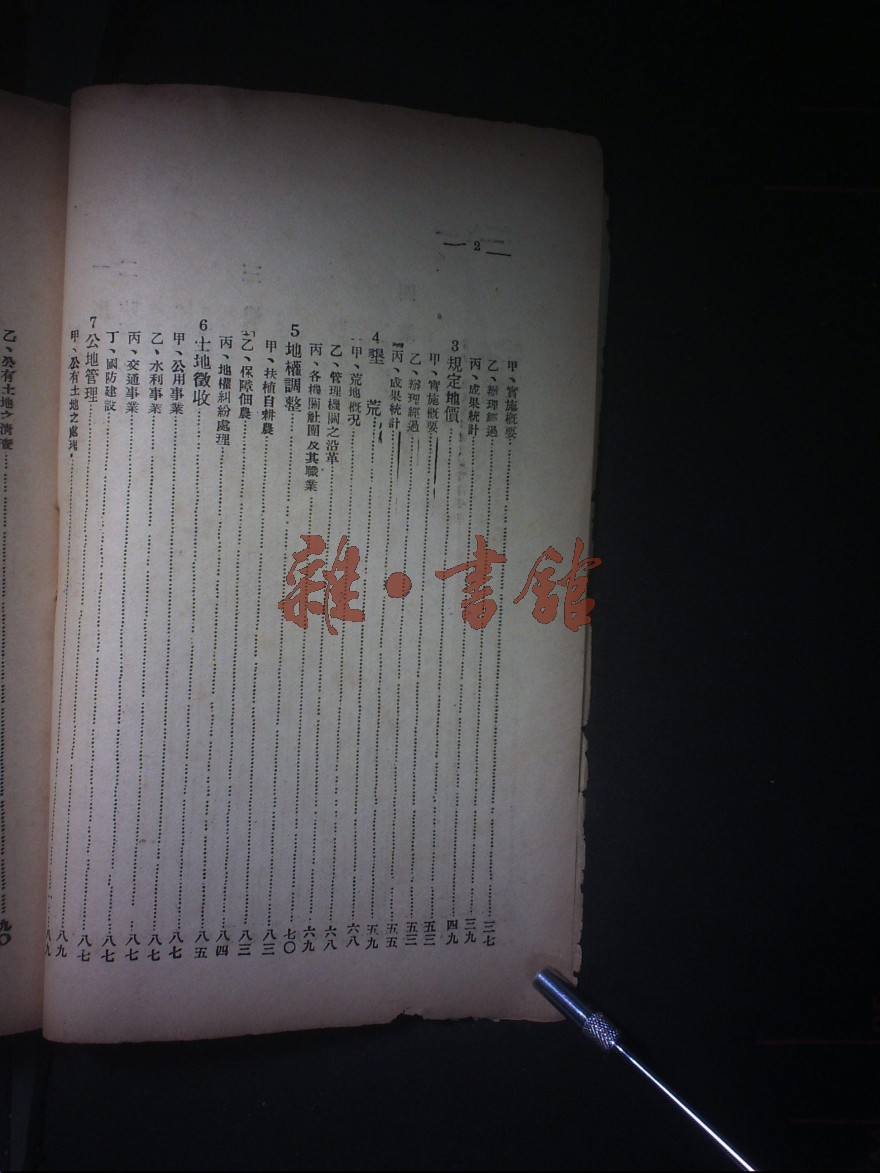 2
甲、實施概要……三七
乙、辦理經過……三九
丙、成果統計……四九
3 規定地價……五三
甲、實施概要……五三
乙、辦理經過……五五
丙、成果統計……五九
4 墾　荒……六八
甲、荒地概況……六八
乙、管理機關之沿革……六九
丙、各機關社團及其職業……七〇
5 地權調整……八三
甲、扶植自耕農……八三
乙、保障佃農……八四
丙、地權糾紛處理……八五
6 土地徵收……八七
甲、公用事業……八七
乙、水利事業……八七
丙、交通事業……八七
丁、國防建設……八七
7 公地管理……八九
甲、公有土地之處理……八九
乙、公有土地之清查……九〇
雜·書館